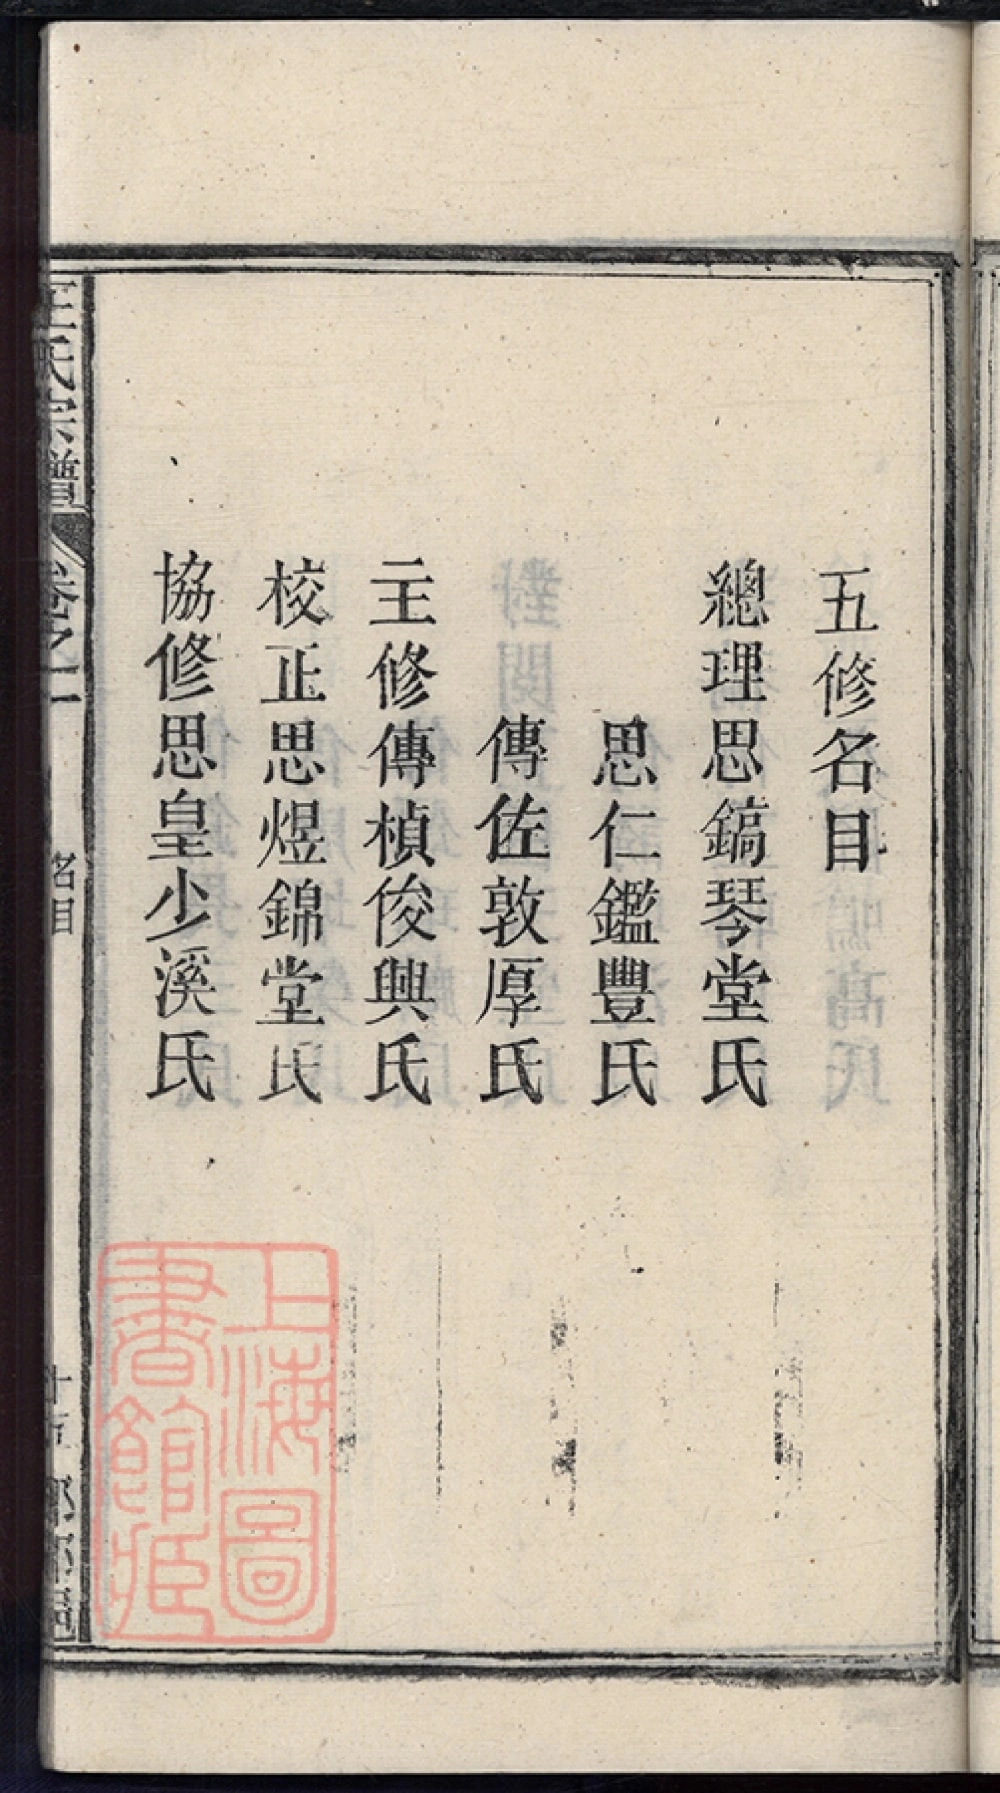 五修名目
總理思鎬琴堂氏
思仁鑑豐氏
傳佐敦厚氏
主修傳楨俊興氏
校正思煜錦堂氏
協修思皇少溪氏
王氏宗譜
卷之一
名目
上海圖
書館藏